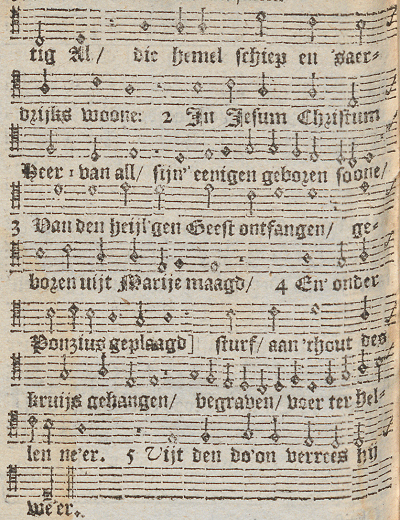 tig Al/ die hemel schiep en 'aer-
drijks woone: 2 In Jesum Christum
Heer: van all/ sijn' eenigen geboren soone/
3 Van den heijl'gen Geest ontfangen/ ge-
boren uijt Marije maagd/ 4 En' onder
Ponzius geplaagd] sturf/ aan 'thout des
kruijs gehangen/ begraven/ voer ter hel-
len ne'er. 5 Uijt den do'on verrees hij
we'er.